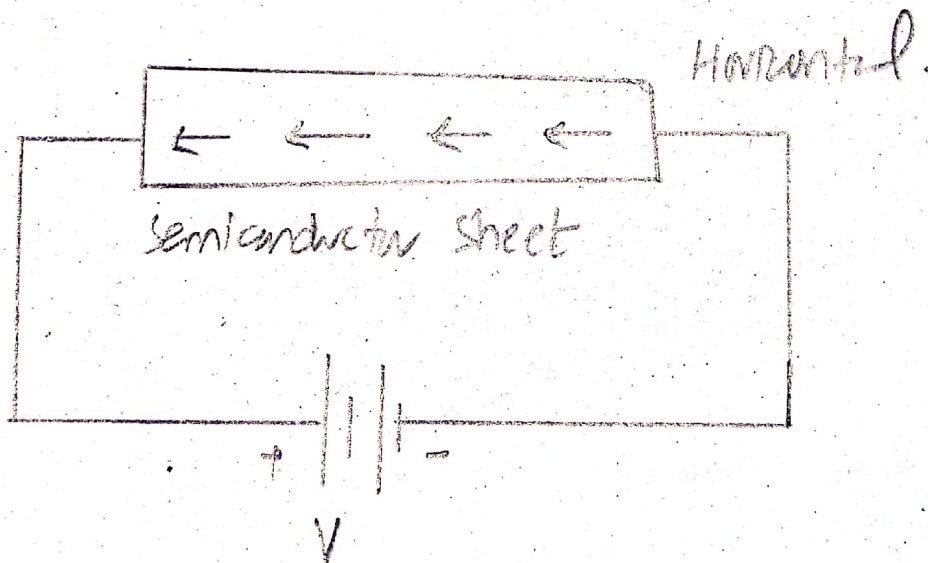 Horizontal.
semiconductor sheet
+ -
V